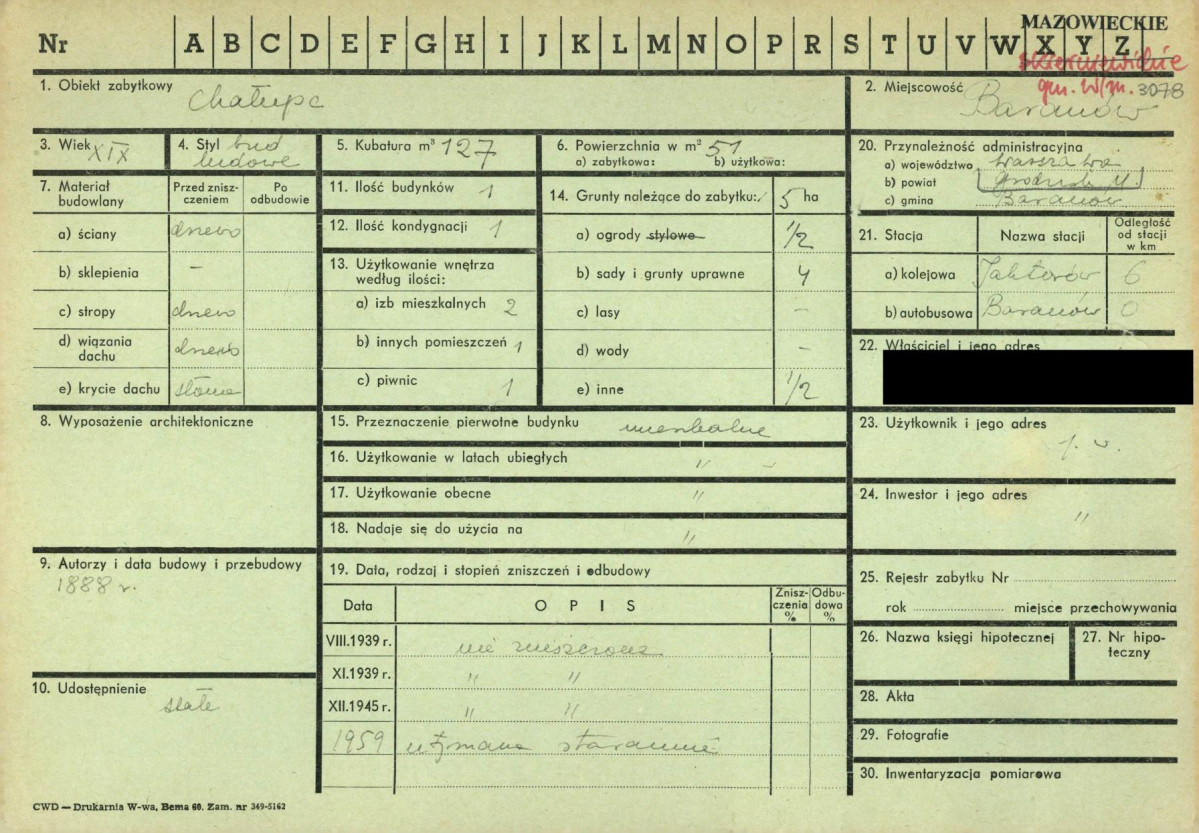 MAZOWIECKIE
Nr A B C D E F G H I J K L M N O P R S T U V W X Y Z
skierniewickie
gm. W/m. 3078
1. Obiekt zabytkowy Chałupa
2. Miejscowość Baranów
3. Wiek XIX
4. Styl bud ludowe
5. Kubatura m³ 127
6. Powierzchnia w m² 51
a) zabytkowa: b) użytkowa:
20. Przynależność administracyjna
a) województwo Warszawa
b) powiat Grodzisk M.
c) gmina Baranów
7. Materiał budowlany
Przed zniszczeniem
Po odbudowie
a) ściany drewno
b) sklepienia –
c) stropy drewno
d) wiązania dachu drewno
e) krycie dachu słoma
11. Ilość budynków 1
12. Ilość kondygnacji 1
13. Użytkowanie wnętrza
według ilości:
a) izb mieszkalnych 2
b) innych pomieszczeń 1
c) piwnic 1
14. Grunty należące do zabytku: 5 ha
a) ogrody stylowe 1/2
b) sady i grunty uprawne 4
c) lasy –
d) wody –
e) inne 1/2
21. Stacja Nazwa stacji Odległość od stacji w km
a) kolejowa Jaktorów 6
b) autobusowa Baranów 0
22. Właściciel i jego adres
8. Wyposażenie architektoniczne
15. Przeznaczenie pierwotne budynku mieszkalne
16. Użytkowanie w latach ubiegłych "
17. Użytkowanie obecne "
18. Nadaje się do użycia na "
23. Użytkownik i jego adres
j. w.
24. Inwestor i jego adres
"
9. Autorzy i data budowy i przebudowy
1888 r.
19. Data, rodzaj i stopień zniszczeń i odbudowy
Data OPIS Zniszczenia % Odbudowa %
VIII.1939 r. nie zniszczona
XI.1939 r. " "
XII.1945 r. " "
1959 utrzymana starannie
25. Rejestr zabytku Nr
rok miejsce przechowywania
26. Nazwa księgi hipotecznej
27. Nr hipoteczny
10. Udostępnienie
stałe
28. Akta
29. Fotografie
30. Inwentaryzacja pomiarowa
CWD — Drukarnia W-wa, Bema 60. Zam. nr 349-5162